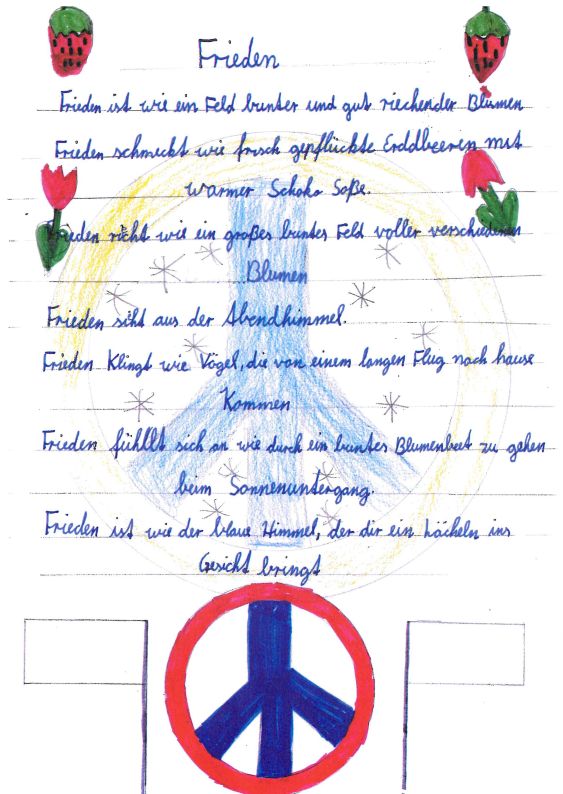 Frieden
Frieden ist wie ein Feld bunter und gut riechender Blumen
Frieden schmeckt wie frisch gepflückte Erddbeeren mit
warmer Schoko Soße.
Frieden richt wie ein großes buntes Feld voller verschiedenen
Blumen
Frieden siht aus der Abendhimmel.
Frieden Klingt wie Vögel, die von einem langen Flug nach hause
Kommen
Frieden fühllt sich an wie durch ein buntes Blumenbeet zu gehen
beim Sonnenuntergang.
Frieden ist wie der blaue Himmel, der dir ein Lächeln ins
Gesicht bringt